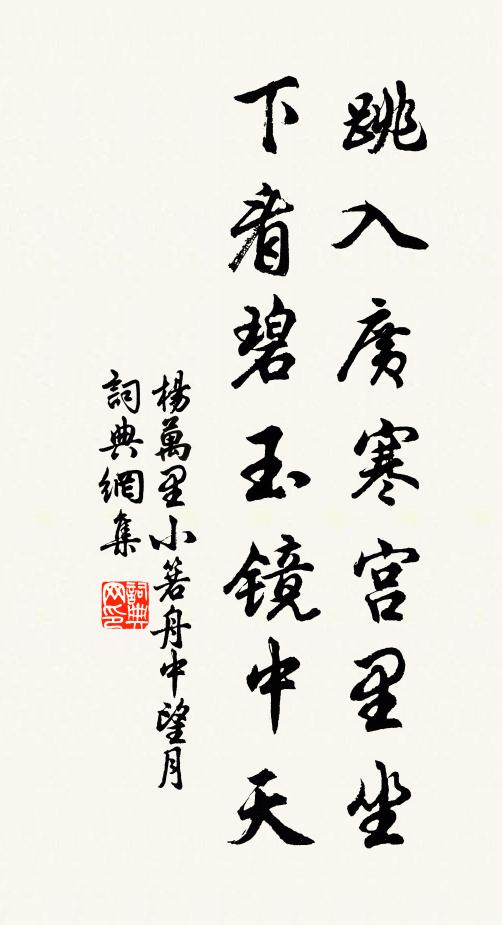 跳入廣寒宫里坐
下看碧玉镜中天
楊萬里小箬舟中望月
詞典網集
詞典
网印